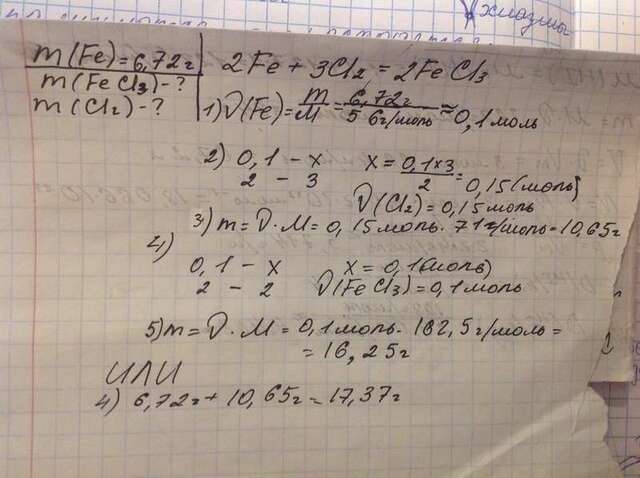 хлоазмы
m(Fe)=6,72г
m(FeCl₃)-?
m(Cl₂)-?
2Fe + 3Cl₂ = 2FeCl₃
1) ν(Fe)= m/M = 6,72г / 56г/моль ≈ 0,1моль
2) 0,1 – x   x = 0,1×3 / 2 = 0,15(моль)
2 – 3
ν(Cl₂)=0,15моль
3) m = ν·M = 0,15моль · 71г/моль = 10,65г
4)
0,1 – x   x = 0,1(моль)
2 – 2   ν(FeCl₃)=0,1моль
5) m = ν·M = 0,1моль · 162,5г/моль =
= 16,25г
ИЛИ
4) 6,72г + 10,65г = 17,37г